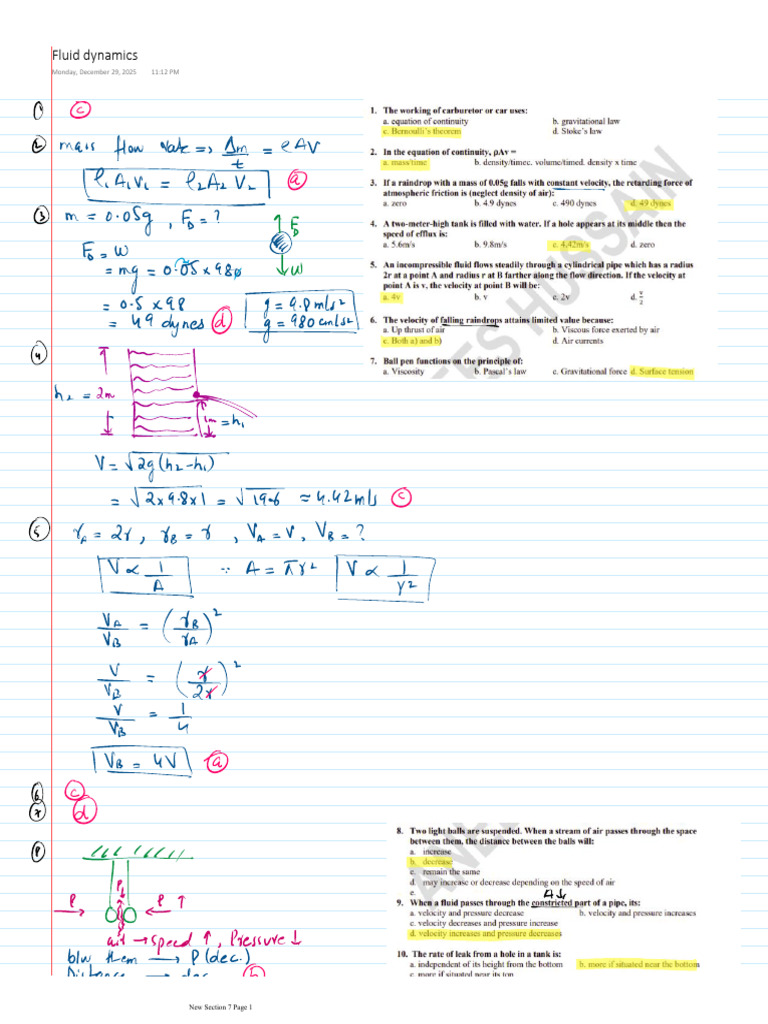 Fluid dynamics
Monday, December 29, 2025 11:12 PM
① ⓒ
② mass flow rate => Δm/t = ρAV
ρ₁A₁V₁ = ρ₂A₂V₂ ⓐ
③ m = 0.05g, F_D = ?
F_D = W
= mg = 0.05 x 980
= 0.5 x 98
= 49 dynes ⓓ
F_D
W
g = 9.8 m/s²
g = 980 cm/s²
④
h₂ = 2m
1m = h₁
V = √2g(h₂-h₁)
= √2x9.8x1 = √19.6 ≈ 4.42 m/s ⓒ
⑤ r_A = 2r, r_B = r, V_A = V, V_B = ?
V ∝ 1/A ∵ A = πr² V ∝ 1/r²
V_A/V_B = (r_B/r_A)²
V/V_B = (r/2r)²
V/V_B = 1/4
V_B = 4V ⓐ
⑥ ⓒ
⑦ ⓓ
⑧
P P P ↑
air → speed ↑, Pressure ↓
b/w them → P (dec.)
Distance → dec ⓑ
1. The working of carburetor or car uses:
a. equation of continuity b. gravitational law
c. Bernoulli's theorem d. Stoke's law
2. In the equation of continuity, ρAv =
a. mass/time b. density/timec. volume/timed. density x time
3. If a raindrop with a mass of 0.05g falls with constant velocity, the retarding force of
atmospheric friction is (neglect density of air):
a. zero b. 4.9 dynes c. 490 dynes d. 49 dynes
4. A two-meter-high tank is filled with water. If a hole appears at its middle then the
speed of efflux is:
a. 5.6m/s b. 9.8m/s c. 4.42m/s d. zero
5. An incompressible fluid flows steadily through a cylindrical pipe which has a radius
2r at a point A and radius r at B farther along the flow direction. If the velocity at
point A is v, the velocity at point B will be:
a. 4v b. v c. 2v d. v/2
6. The velocity of falling raindrops attains limited value because:
a. Up thrust of air b. Viscous force exerted by air
c. Both a) and b) d. Air currents
7. Ball pen functions on the principle of:
a. Viscosity b. Pascal's law c. Gravitational force d. Surface tension
8. Two light balls are suspended. When a stream of air passes through the space
between them, the distance between the balls will:
a. increase
b. decrease
c. remain the same
d. may increase or decrease depending on the speed of air
e.
A↓
9. When a fluid passes through the constricted part of a pipe, its:
a. velocity and pressure decrease b. velocity and pressure increases
c. velocity decreases and pressure increase
d. velocity increases and pressure decreases
10. The rate of leak from a hole in a tank is:
a. independent of its height from the bottom b. more if situated near the bottom
c. more if situated near its top
HUSSAIN
New Section 7 Page 1